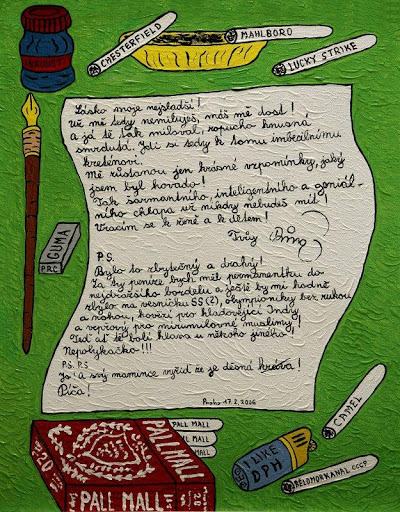 CHESTERFIELD
MAHLBORO
LUCKY STRIKE
INKOUST
Lásko moje nejsladší!
Už mě tedy nemiluješ, máš mě dost!
a já tě tak miloval, ropucho hnusná
smrdutá. Jdi si tedy k tomu imbecilnímu
kreténovi.
Mě zůstanou jen krásné vzpomínky, jaký
jsem byl hovado!
Tak šarmantního, inteligentního a geniál-
ního chlapa už nikdy nebudeš mít!
Vracím se k ženě a k dětem!
Tvůj
GUMA
PRC
P.S.
Bylo to zbytečný a drahý!
Za ty peníze bych měl permanentku do
nejdražšího bordelu a ještě by mi hodně
zbylo na vesničku SS(?), olympioniky bez rukou
a nohou, kozězí pro hladovějící Indry
a vepřový pro mírumilovné muslimy!
Teď ať tě bolí hlava u někoho jiného!
Nepolykačko!!!
P.S. P.S
Jo a svý mamince vyřiď že je děsná kráva!
Píča!
Praha 17.2.2006
PALL MALL
PALL MALL
MALL
PALL MALL
20
PALL MALL
20
CAMEL
I LIKE
DPH
BELOMORKANAL CCCP